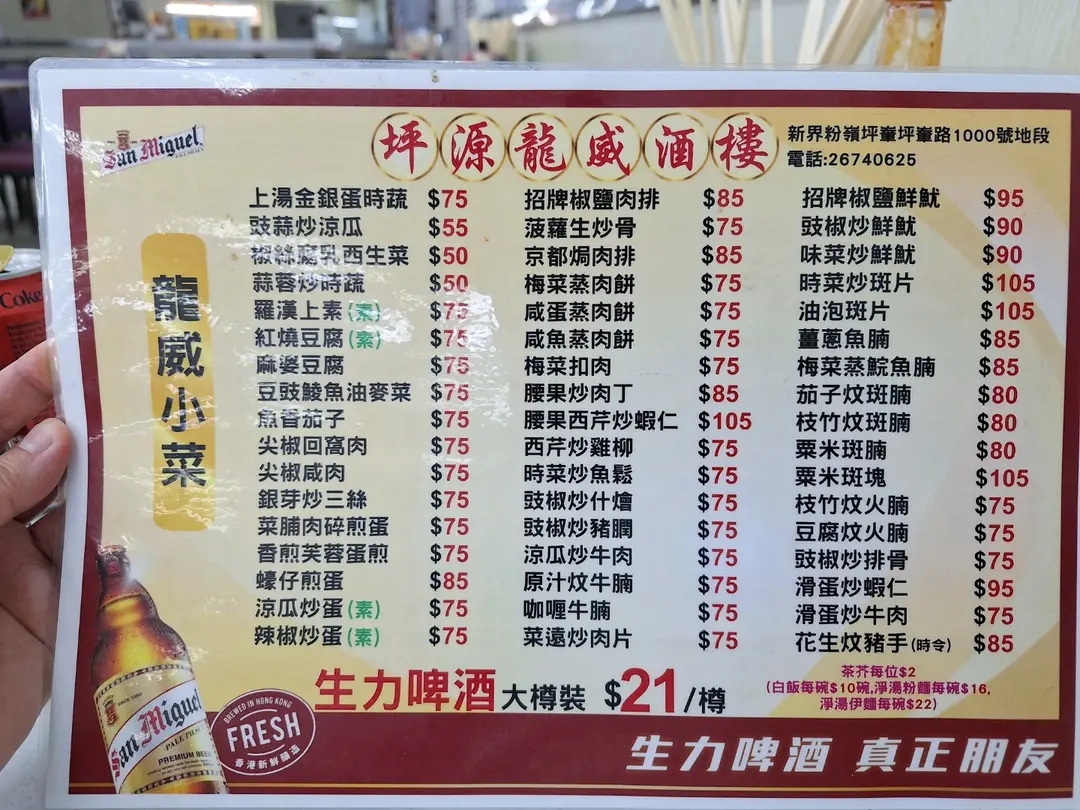 San Miguel
坪源龍威酒樓
新界粉嶺坪輋坪輋路1000號地段
電話:26740625
龍威小菜
上湯金銀蛋時蔬 $75
豉蒜炒涼瓜 $55
椒絲腐乳西生菜 $50
蒜蓉炒時蔬 $50
羅漢上素(素) $75
紅燒豆腐(素) $75
麻婆豆腐 $75
豆豉鯪魚油麥菜 $75
魚香茄子 $75
尖椒回窩肉 $75
尖椒咸肉 $75
銀芽炒三絲 $75
菜脯肉碎煎蛋 $75
香煎芙蓉蛋煎 $75
蠔仔煎蛋 $85
涼瓜炒蛋(素) $75
辣椒炒蛋(素) $75
招牌椒鹽肉排 $85
菠蘿生炒骨 $75
京都焗肉排 $85
梅菜蒸肉餅 $75
咸蛋蒸肉餅 $75
咸魚蒸肉餅 $75
梅菜扣肉 $75
腰果炒肉丁 $85
腰果西芹炒蝦仁 $105
西芹炒雞柳 $75
時菜炒魚鬆 $75
豉椒炒什燴 $75
豉椒炒豬膶 $75
涼瓜炒牛肉 $75
原汁炆牛腩 $75
咖喱牛腩 $75
菜遠炒肉片 $75
招牌椒鹽鮮魷 $95
豉椒炒鮮魷 $90
味菜炒鮮魷 $90
時菜炒斑片 $105
油泡斑片 $105
薑蔥魚腩 $85
梅菜蒸鯇魚腩 $85
茄子炆斑腩 $80
枝竹炆斑腩 $80
粟米斑腩 $80
粟米斑塊 $105
枝竹炆火腩 $75
豆腐炆火腩 $75
豉椒炒排骨 $75
滑蛋炒蝦仁 $95
滑蛋炒牛肉 $75
花生炆豬手(時令) $85
生力啤酒 大樽裝 $21/樽
茶芥每位$2
(白飯每碗$10碗,淨湯粉麵每碗$16,
淨湯伊麵每碗$22)
BREWED IN HONG KONG
FRESH
香港新鮮釀造
San Miguel
PALE PILSEN
PREMIUM BEER
生力啤酒 真正朋友
Coke